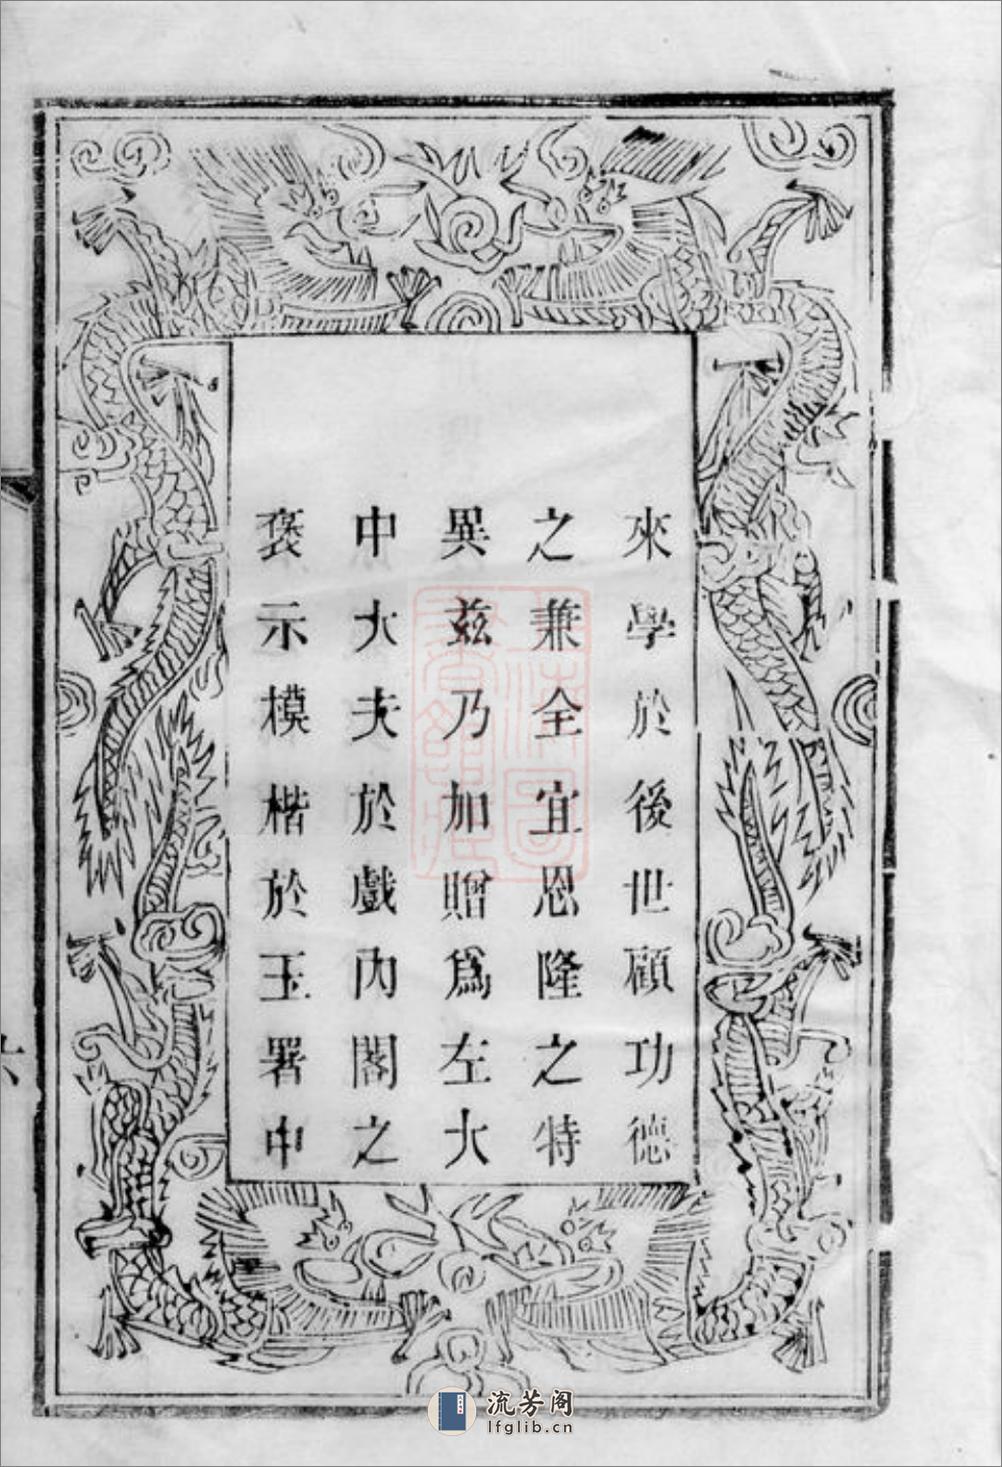 來學於後世顧功德
之兼全宜恩隆之特
異茲乃加贈爲左大
中大夫於戲內閣之
褒示模楷於玉署中
六
流芳阁
lfglib.cn